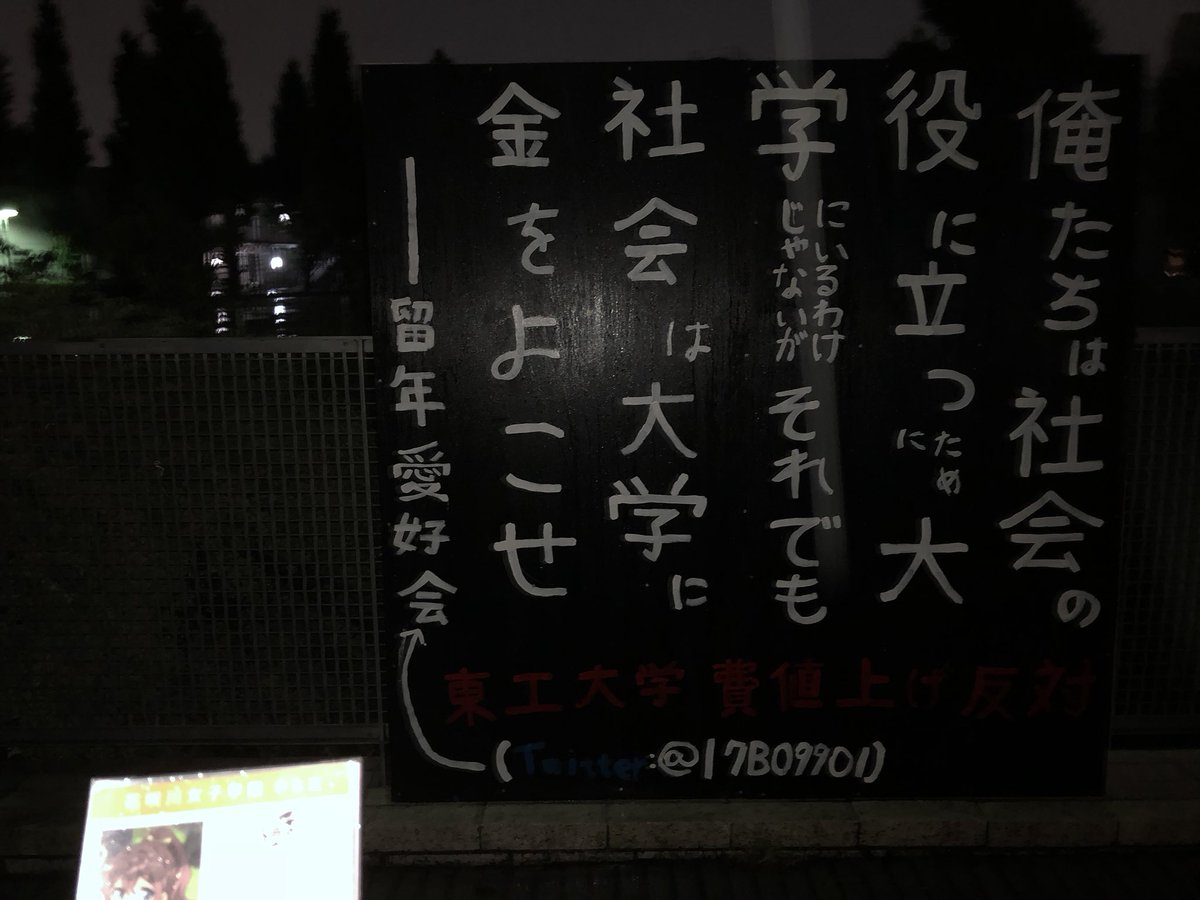 俺たちは社会の
役に立つために大
学にいるわけじゃないがそれでも
社会は大学に
金をよこせ
——留年愛好会
東工大学費値上げ反対
(Twitter:@17B09901)